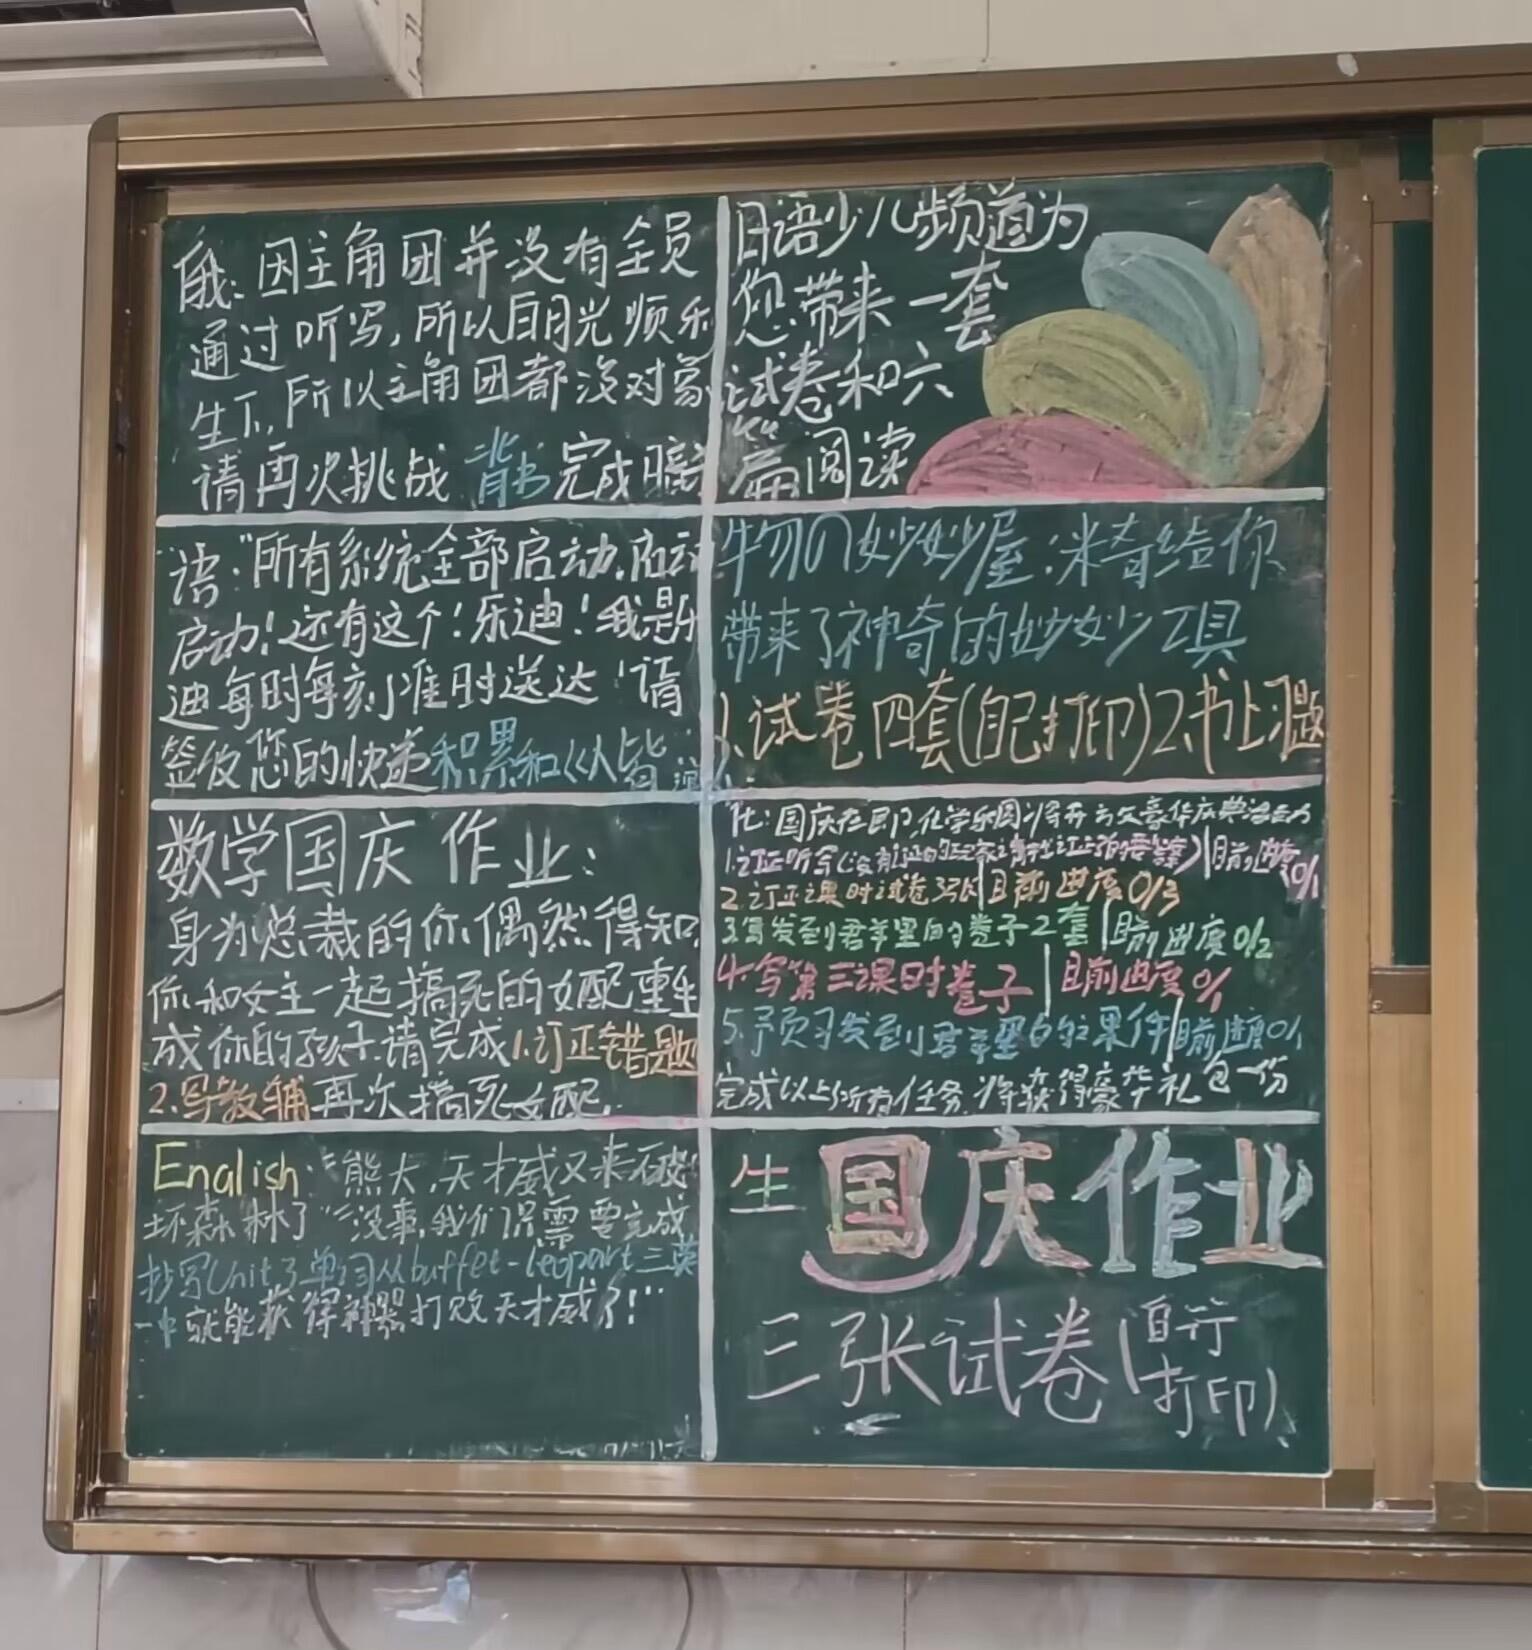 俄：因主角团并没有全员
通过听写，所以白月光顺利
生下，所以主角团都没对象
请再次挑战背书完成
日语少儿频道为
您带来一套
试卷和六
篇阅读
语："所有系统全部启动，启动
启动！还有这个！乐迪！我是乐
迪每时每刻准时送达"请
签收您的快递积累和《从皆
物の妙妙屋：米奇给你
带来了神奇的妙妙工具
1、试卷四套(自己打印)2、书上习题
数学国庆作业：
身为总裁的你偶然得知，
你和女主一起搞死的女配重生
成你的孩子.请完成1.订正错题
2.写教辅再次搞死女配.
化：国庆在即，化学乐园将开
1.订正听写 目前进度0/1
2.订正课时试卷3张|目前进度0/3
3.写发到君苹里的卷子2套|目前进度0/2
4.写第三课时卷子|目前进度0/1
5.预习发到君苹里的课件|目前进度0/1
完成以上所有任务，将获得豪华礼包一份
English："熊大，天才威又来破
坏森林了""没事，我们只需要完成
抄写Unit3单词从buffet-leopart三英
一中就能获得神器打败天才威了！"
生 国庆作业
三张试卷(自行
打印)